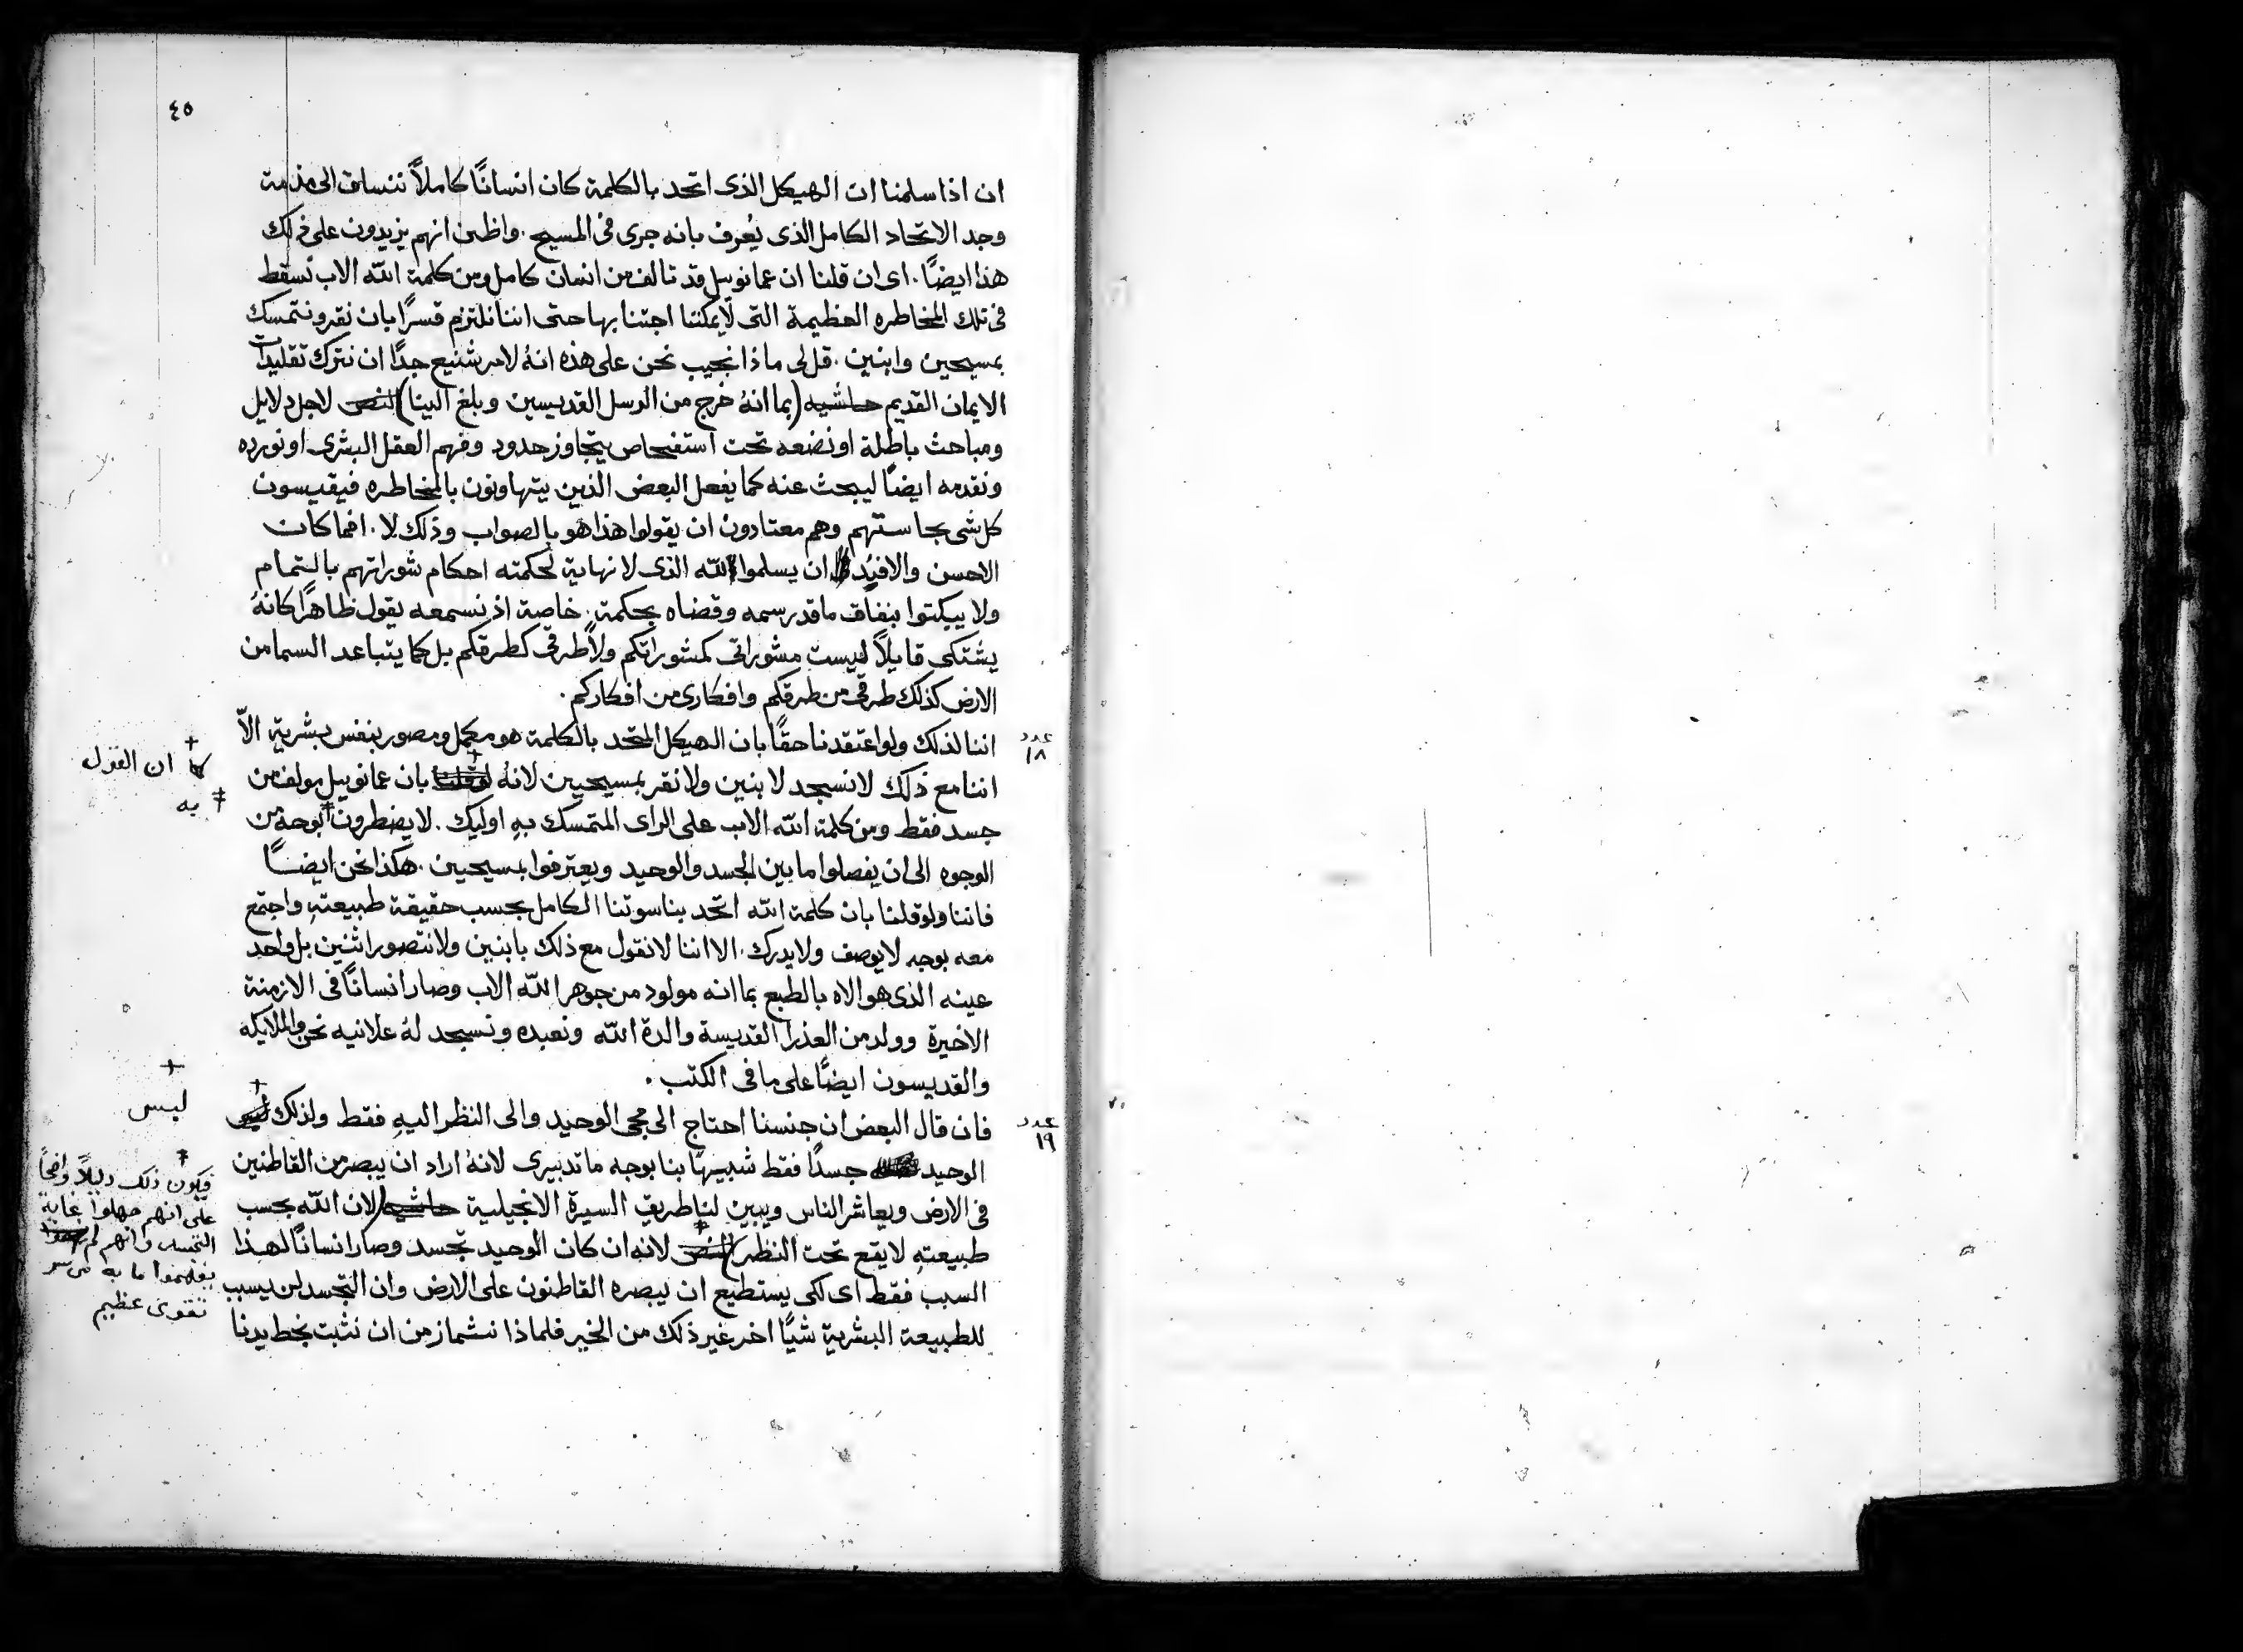 ٤٥
ان اذا سلمنا ان الهيكل الذى اتحد بالكلمة كان انسانًا كاملاً ننساق الى مذمة
وجد الاتحاد الكامل الذى يُعرف بانه جرى فى المسيح . واظن انهم يزيدون على ذلك
هذا ايضًا . اى ان قلنا ان عمانوييل قد تالف من انسان كامل ومن كلمة الله الاب نسقط
فى تلك المخاطره العظيمة التى لا يمكننا اجتنابها حتى اننا نلتزم قسرًا بان نقر ونتمسك
بمسيحين وابنين . قل لى ماذا نجيب نحن على هذه انهُ لامر شنيع جدًا ان نترك تقليدات
الايمان القديم حاشيه (بما انهُ خرج من الرسل القديسين وبلغ الينا) النص لاجل دلايل
ومباحث باطلة او نضعه تحت استفحاص يتجاوز حدود وفهم العقل البشرى او نورده
ونقدمه ايضًا ليبحث عنه كما يفعل البعض الذين يتهاونون بالمخاطره فيقيسون
كل شى بجاستهم وهم معتادون ان يقولوا هذا هو بالصواب وذلك لا . افما كان
الاحسن والافيد ان يسلموا لله الذى لا نهاية لحكمته احكام شوراتهم بالتمام
ولا يبكتوا بنفاق ما قد رسمه وقضاه بحكمة . خاصة اذ نسمعه يقول ظاهرًا كانهُ
يشتكى قايلاً ليست مشوراتى كمشوراتكم ولا طرقى كطرقكم بل كما يتباعد السما من
الارض كذلك طرقى من طرقكم وافكارى من افكاركم .
عدد ١٨
اننا لذلك ولو اعتقدنا حقًا بان الهيكل المتحد بالكلمة هو مكمل ومصور بنفس بشرية الاّ
اننا مع ذلك لا نسجد لابنين ولا نقر بمسيحيين لانهُ لو قلنا بان عمانوييل مولف من
جسد فقط ومن كلمة الله الاب على الراى المتمسك بهِ اوليك . لا يضطرون بوجه من
الوجوه الى ان يفصلوا ما بين الجسد والوحيد ويعترفوا بمسيحيين . هكذا نحن ايضًا
فاننا ولو قلنا بان كلمة الله اتحد بناسوتنا الكامل بحسب حقيقة طبيعتهِ واجتمع
معه بوجه لا يوصف ولا يدرك . الا اننا لا نقول مع ذلك بابنين ولا نتصور اثنين بل واحد
عينه الذى هو الاه بالطبع بما انه مولود من جوهر الله الاب وصار انسانًا فى الازمنة
الاخيرة وولد من العذرا القديسة والدة الله ونعبده ونسجد لهُ علانيه نحن والملايكة
والقديسون ايضًا على ما فى الكتب .
عدد ١٩
فان قال البعض ان جنسنا احتاج الى مجى الوحيد والى النظر اليهِ فقط ولذلك ليس
الوحيد جسدًا فقط شبيهًا بنا بوجه ما تدبيرى لانهُ اراد ان يبصر من القاطنين
فى الارض ويعاشر الناس ويبين لنا طريق السيرة الانجيلية حاشيه (لان الله بحسب
طبيعتهِ لا يقع تحت النظر) النص لانه ان كان الوحيد تجسد وصار انسانًا لهذا
السبب فقط اى لكى يستطيع ان يبصره القاطنون على الارض وان التجسد لن يسبب
للطبيعة البشرية شيًا اخر غير ذلك من الخير فلماذا نشماز من ان نثبت بخط يدنا
ان القول
به
لبس
فيكون ذلك دليلاً واضحًا
على انهم جهلوا غاية
التجسد وانهم لم
يفهموا ما به من سر
تقوى عظيم